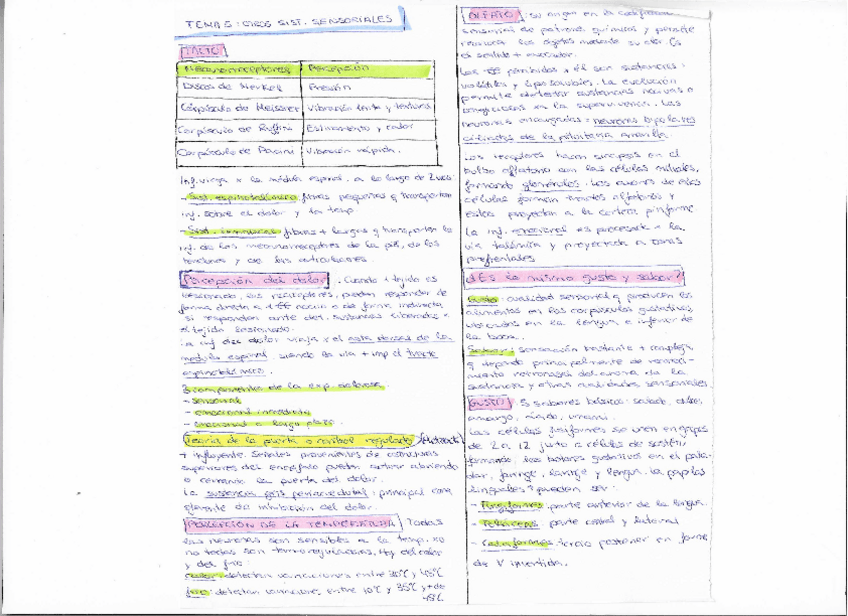 TEMA 5: OTROS SIST. SENSORIALES
TACTO
Mecanorreceptores Percepción
Discos de Merkel Presión
Corpúsculo de Meissner Vibración lenta y texturas
Corpúsculo de Ruffini Estiramiento y calor
Corpúsculo de Pacini Vibración rápida.
Inf. viaja x la médula espinal a lo largo de 2 vías:
- Sist. espinotalámico: fibras pequeñas q transportan
inf. sobre el dolor y la temp.
- Sist. : fibras + largas q transportan la
inf. de los mecanorreceptores de la piel, de los
tendones y de las articulaciones.
Percepción del dolor. Cuando 1 tejido es
lesionado, los receptores pueden responder de
forma directa a 1 EE nocivo o de forma indirecta
si responden ante det. sustancias liberadas x
el tejido lesionado.
La inf. del dolor viaja x el asta dorsal de la
médula espinal, siendo la vía + imp el tracto
espinotalámico.
3 componentes de la exp. dolorosa:
- sensorial
- emocional inmediato
- emocional a largo plazo
Teoría de la puerta o control regulado (Melzack)
+ influyente. Señales provenientes de estructuras
superiores del encéfalo pueden activar abriendo
o cerrando la puerta del dolor.
La sustancia gris periacueductal: principal
de inhibición del dolor.
PERCEPCIÓN DE LA TEMPERATURA Todas
las neuronas son sensibles a la temp. xo
no todas son termorreguladoras. Hay del calor
y del frío:
calor: detectan variaciones entre 30ºC y 45ºC
frío: detectan variaciones entre 10ºC y 35ºC y + de
45ºC
OLFATO: su origen en la codificación
sensorial de patrones químicos y permite
reconocer los objetos mediante su olor. Es
el sentido + evocador.
Los EE percibidos x él son sustancias
volátiles y liposolubles. La evolución
permite detectar sustancias nocivas o
en la supervivencia. Las
neuronas encargadas = neuronas bipolares
ciliadas de la pituitaria amarilla.
Los receptores hacen sinapsis en el
bulbo olfatorio con las células mitrales,
formando glomérulos. Los axones de estas
células forman tractos olfatorios y
estos proyectan a la corteza piriforme.
La inf. emocional es procesada x la
vía talámica y proyectada a zonas
prefrontales
¿Es lo mismo gusto y sabor?
Gusto: cualidad sensorial q producen los
alimentos en los corpúsculos gustativos,
ubicados en la lengua e inferior de
la boca.
Sabor: sensación bastante + compleja
q depende principalmente de reconoci-
miento retronasal del aroma de la
sustancia y otras cualidades sensoriales.
GUSTO 5 sabores básicos: salado, dulce,
amargo, ácido, umami.
Las células fusiformes se unen en grupos
de 2 a 12 junto a células de sostén,
formando los botones gustativos en el pala-
dar, faringe, laringe y lengua. La papilas
linguales pueden ser:
- Fungiformes: parte anterior de la lengua.
- Foliáceas: parte central y lateral
- Caliciformes: tercio posterior en forma
de V invertida.